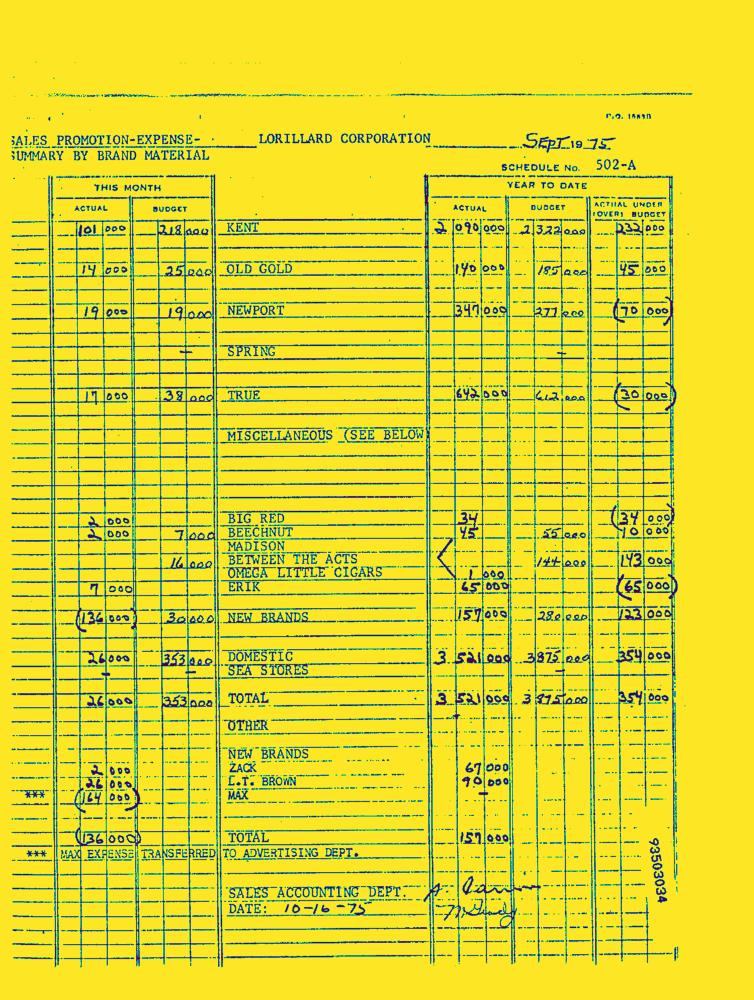 P.O. 1589B
SALES PROMOTION-EXPENSE- LORILLARD CORPORATION SEPT 19 75
SUMMARY BY BRAND MATERIAL
SCHEDULE No. 502-A
THIS MONTH YEAR TO DATE
ACTUAL BUDGET ACTUAL BUDGET ACTUAL UNDER
(OVER) BUDGET
101 000 218 000 KENT 2 090 000 2 322 000 232 000
14 000 25 000 OLD GOLD 140 000 185 000 45 000
19 000 19 000 NEWPORT 347 000 277 000 (70 000)
— SPRING —
17 000 38 000 TRUE 642 000 612 000 (30 000)
MISCELLANEOUS (SEE BELOW)
2 000 BIG RED 34 (34 000)
2 000 7 000 BEECHNUT 45 55 000 10 000
MADISON
16 000 BETWEEN THE ACTS 144 000 143 000
OMEGA LITTLE CIGARS 1 000
7 000 ERIK 65 000 (65 000)
(136 000) 30 000 NEW BRANDS 157 000 280 000 123 000
26 000 353 000 DOMESTIC 3 521 000 3 875 000 354 000
— — SEA STORES —
26 000 353 000 TOTAL 3 521 000 3 875 000 354 000
OTHER
NEW BRANDS
2 000 ZACK 67 000
26 000 L.T. BROWN 90 000
*** (164 000) MAX —
(136 000) TOTAL 157 000
*** MAX EXPENSE TRANSFERRED TO ADVERTISING DEPT.
SALES ACCOUNTING DEPT.
DATE: 10-16-75
93503034